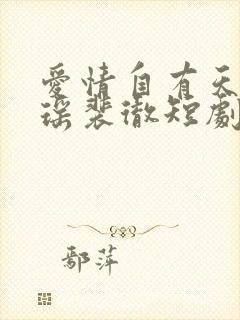 愛情自有天
瑶裴徹短劇
鄢萍